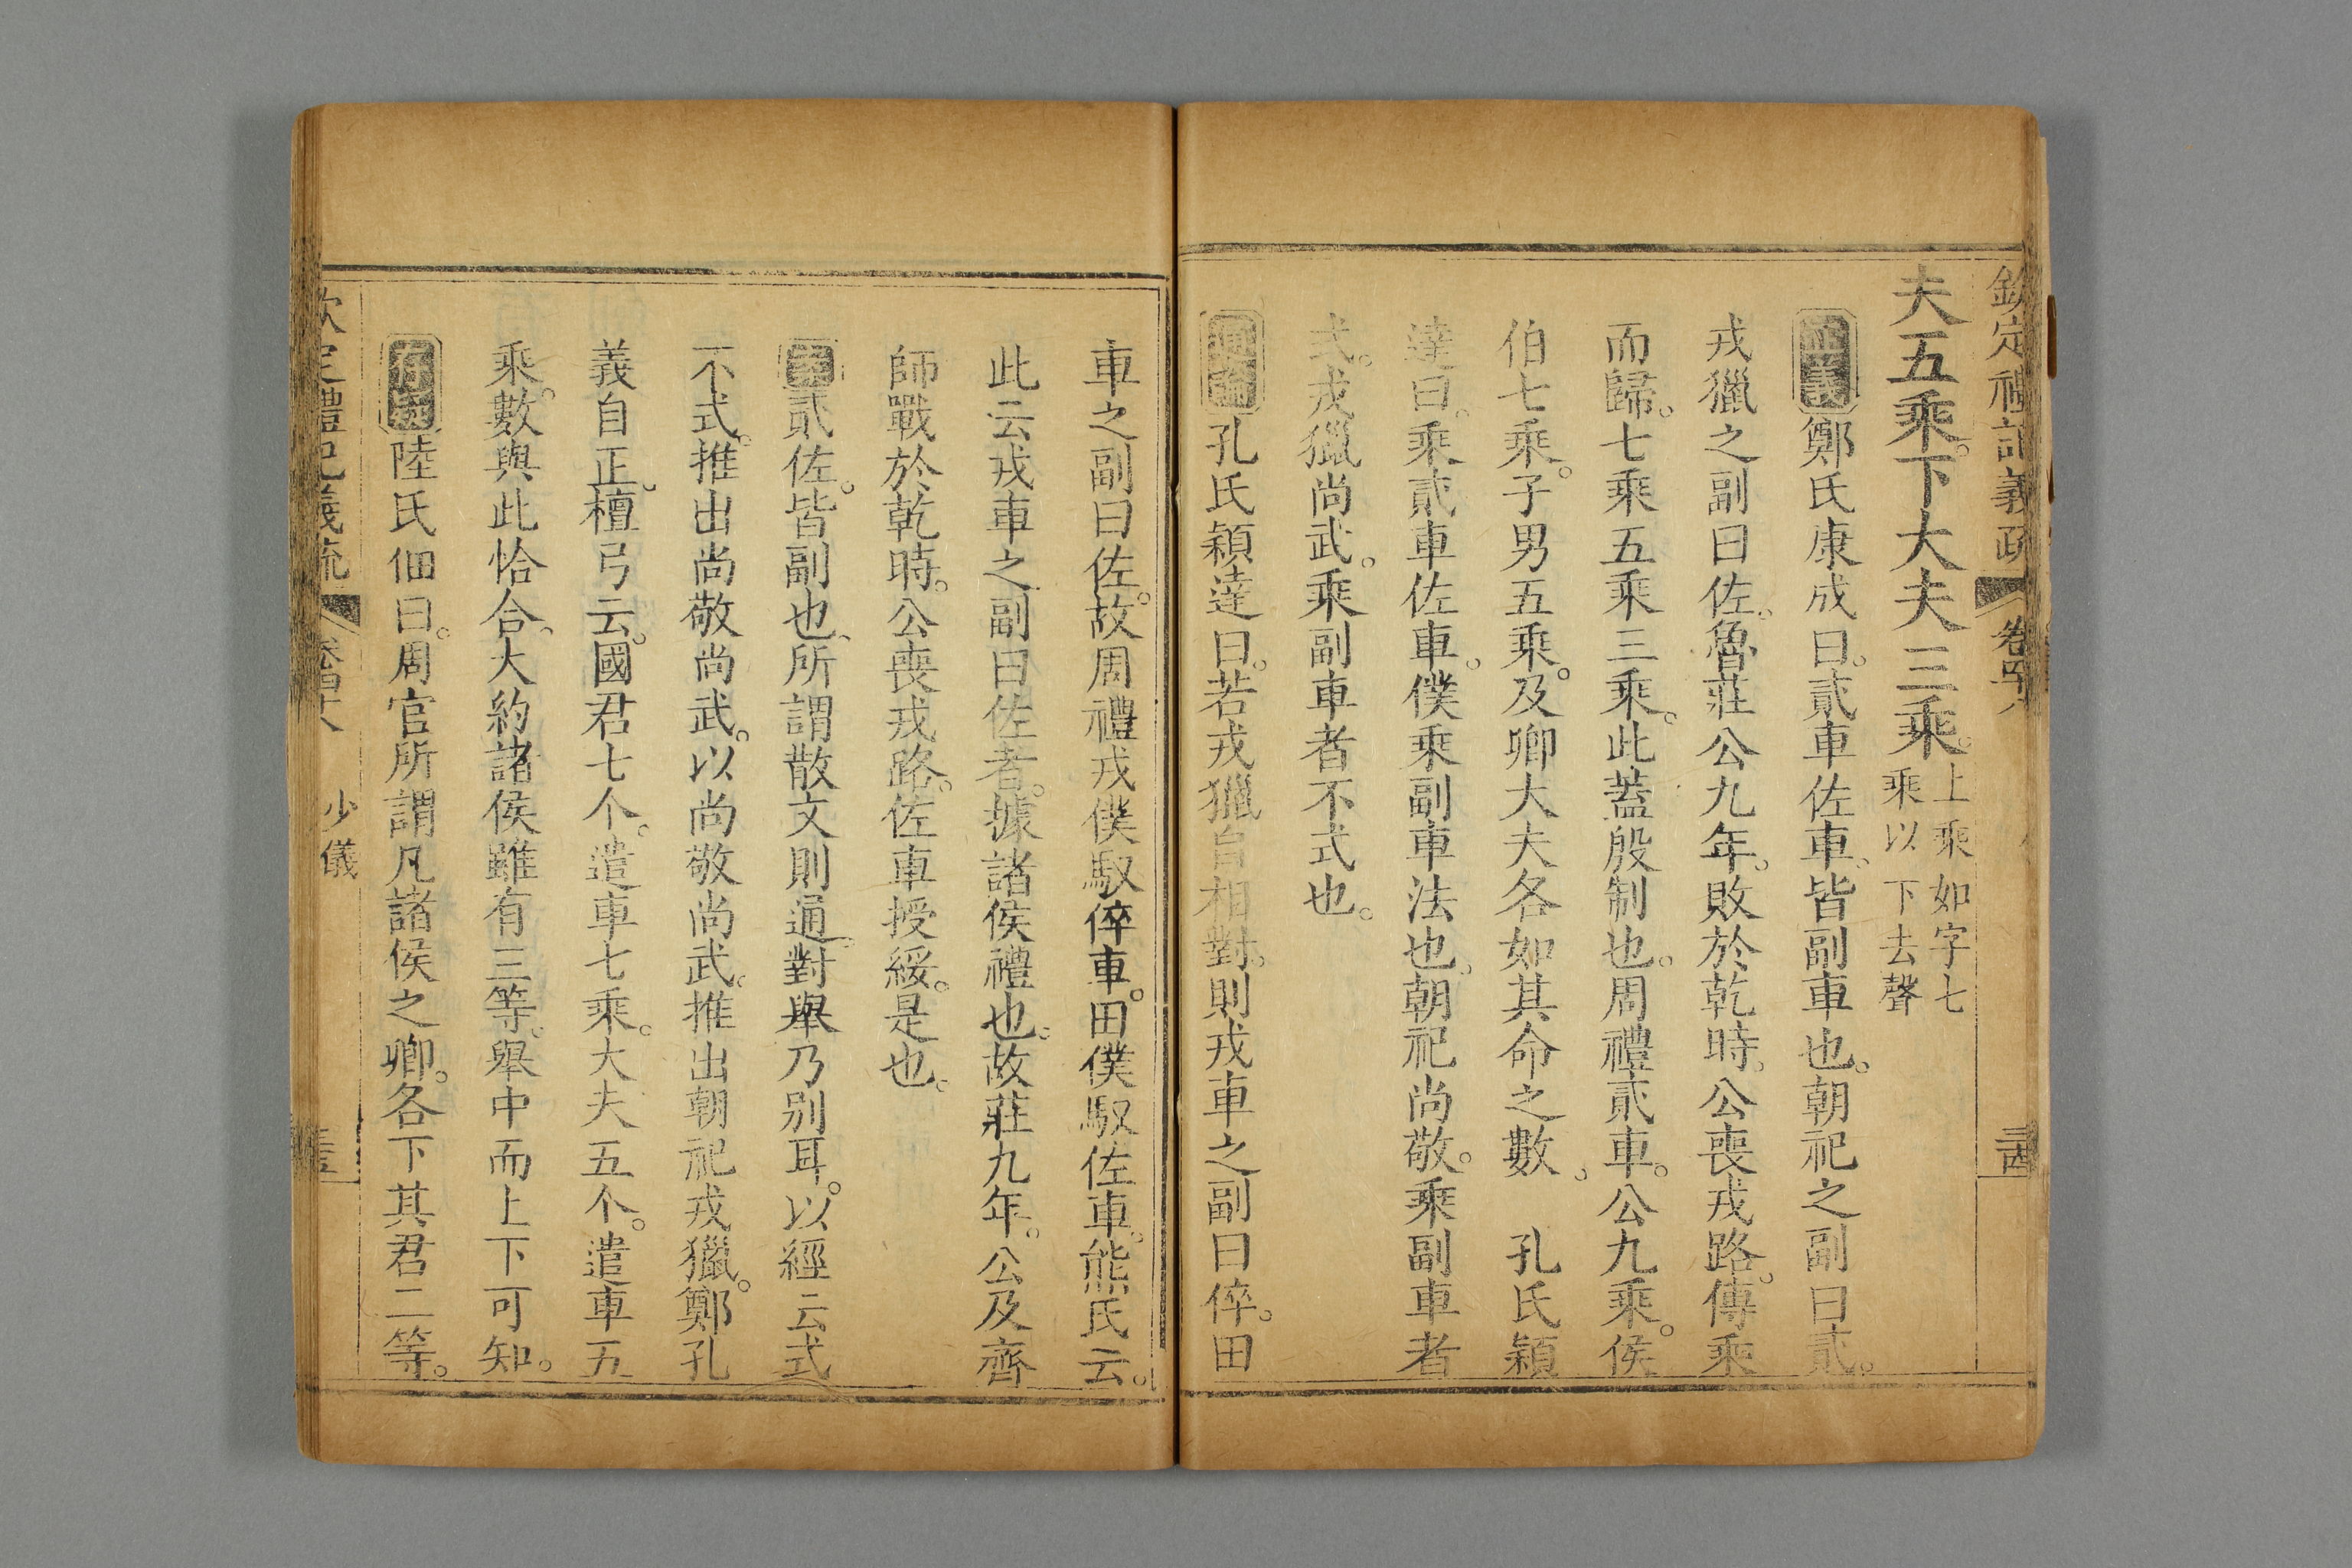 欽定禮記義疏 卷四十八 三十四
夫五乘。下大夫三乘。上乘如字七乘以下去聲
正義鄭氏康成曰。貳車佐車、皆副車也。朝祀之副曰貳。
戎獵之副曰佐。魯莊公九年。敗於乾時。公喪戎路。傳乘
而歸。七乘五乘三乘。此蓋殷制也。周禮貳車。公九乘。侯
伯七乘。子男五乘。及卿大夫各如其命之數。 孔氏穎
達曰。乘貳車佐車。僕乘副車法也。朝祀尚敬。乘副車者
式。戎獵尚武。乘副車者不式也。
通論孔氏穎達曰。若戎獵自相對。則戎車之副曰倅。田
車之副曰佐。故周禮戎僕馭倅車。田僕馭佐車。熊氏云。
此云戎車之副曰佐者。據諸侯禮也。故莊九年。公及齊
師戰於乾時。公喪戎路。佐車授綏。是也。
案貳佐。皆副也、所謂散文則通、對舉乃別耳。以經云式
不式。推出尚敬尚武。以尚敬尚武。推出朝祀戎獵。鄭孔
義自正。檀弓云。國君七个。遣車七乘。大夫五个。遣車五
乘。數與此恰合、大約諸侯雖有三等。舉中而上下可知。
存疑陸氏佃曰。周官所謂凡諸侯之卿。各下其君二等。
欽定禮記義疏 卷四十八 少儀 三十五